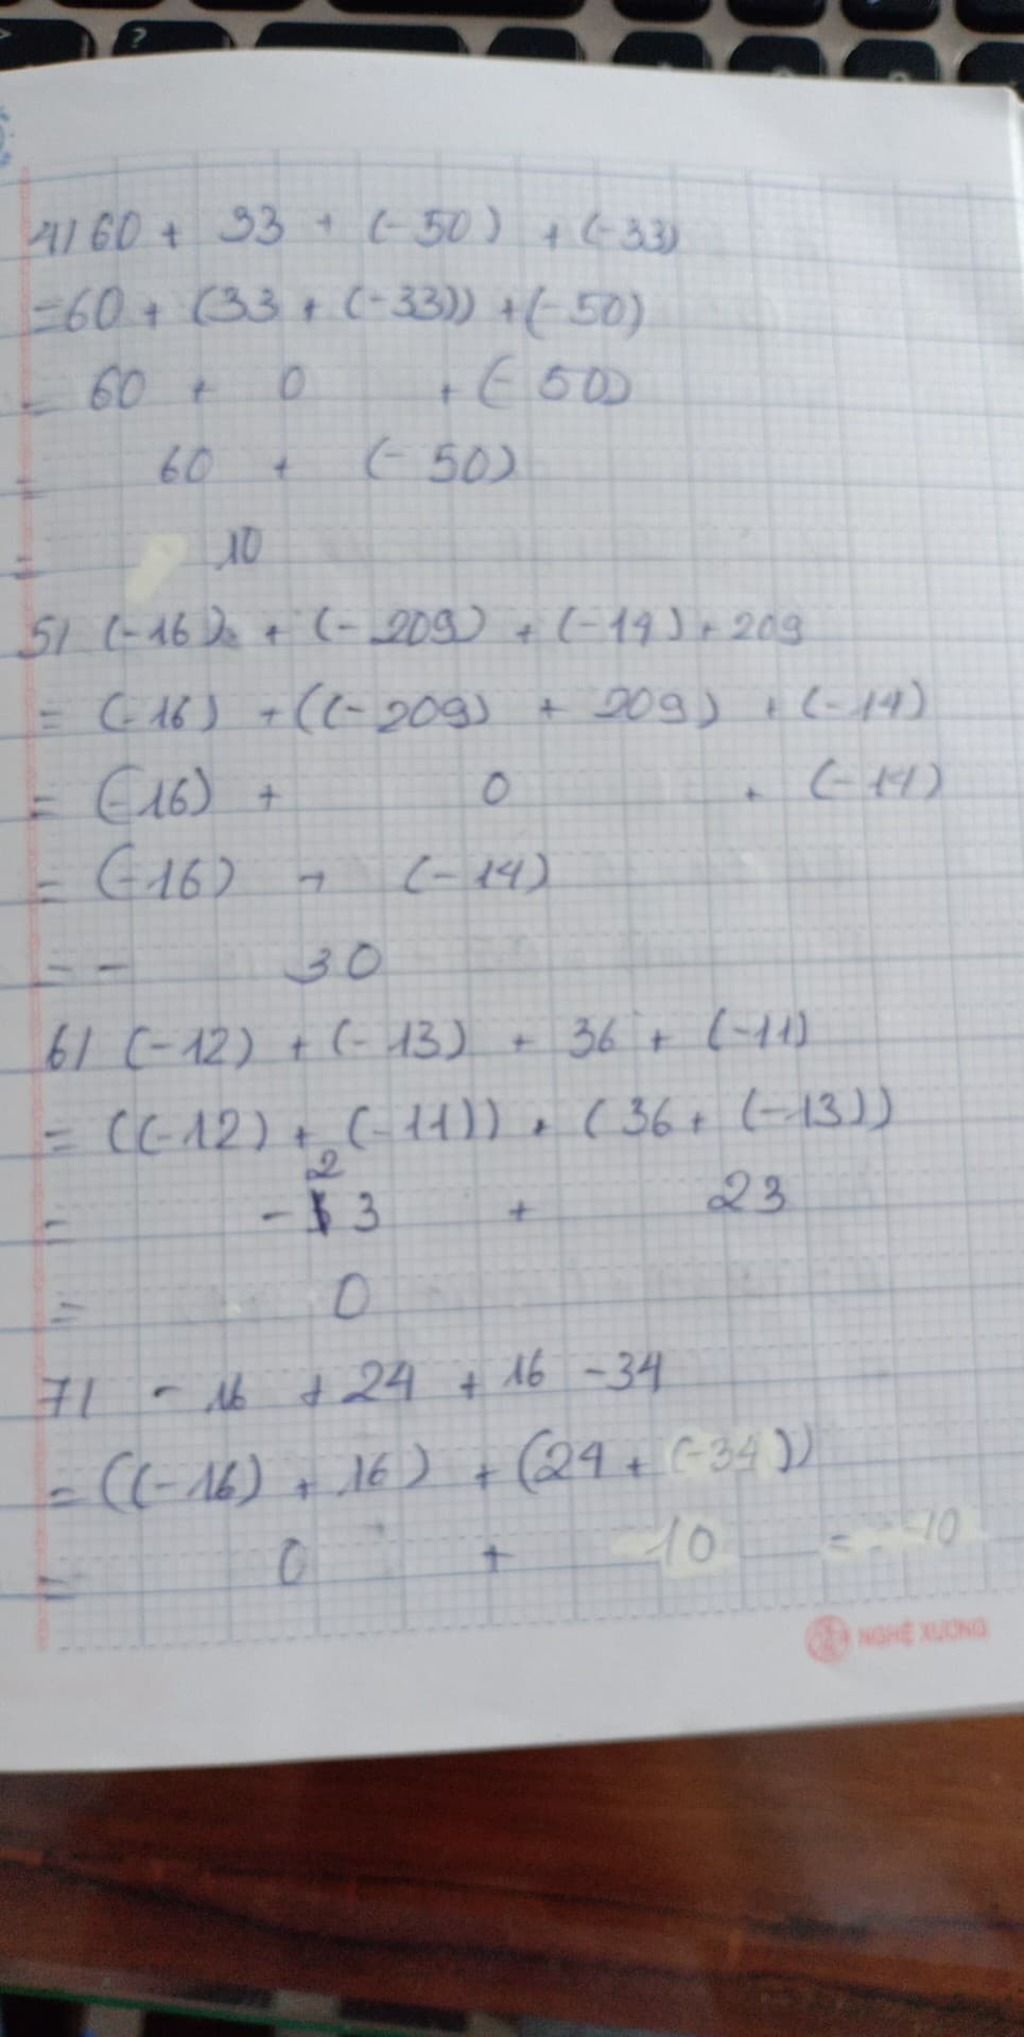 ?
4) 60 + 33 + (-50) + (-33)
= 60 + (33 + (-33)) + (-50)
= 60 + 0 + (-50)
= 60 + (-50)
= 10
5) (-16) + (-209) + (-14) + 209
= (-16) + ((-209) + 209) + (-14)
= (-16) + 0 + (-14)
= (-16) + (-14)
= - 30
6) (-12) + (-13) + 36 + (-11)
= ((-12) + (-11)) + (36 + (-13))
= -23 + 23
= 0
7) - 16 + 24 + 16 - 34
= ((-16) + 16) + (24 + (-34))
= 0 + -10 = -10
NGHỆ XƯƠNG